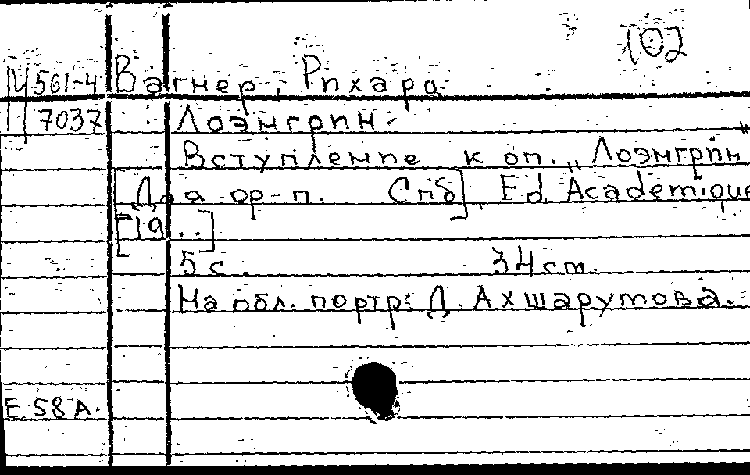 102
М 561-4 Вагнер, Рихард
7037 Лоэнгрин.
Вступление к оп. „Лоэнгрин"
[Для ор-п. Спб], Ed. Academique
[19..]
5 с. 34 cm.
На обл. портр: Д. Ахшарумова.
E 58 A.